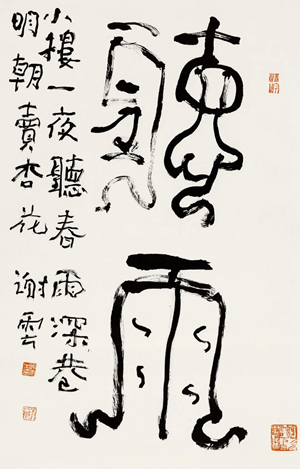 聽雨
小樓一夜聽春雨深巷
明朝賣杏花 謝雲